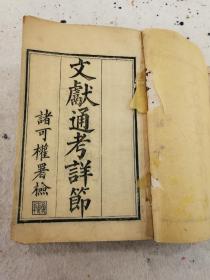 文獻通考詳節
諸可權署檢